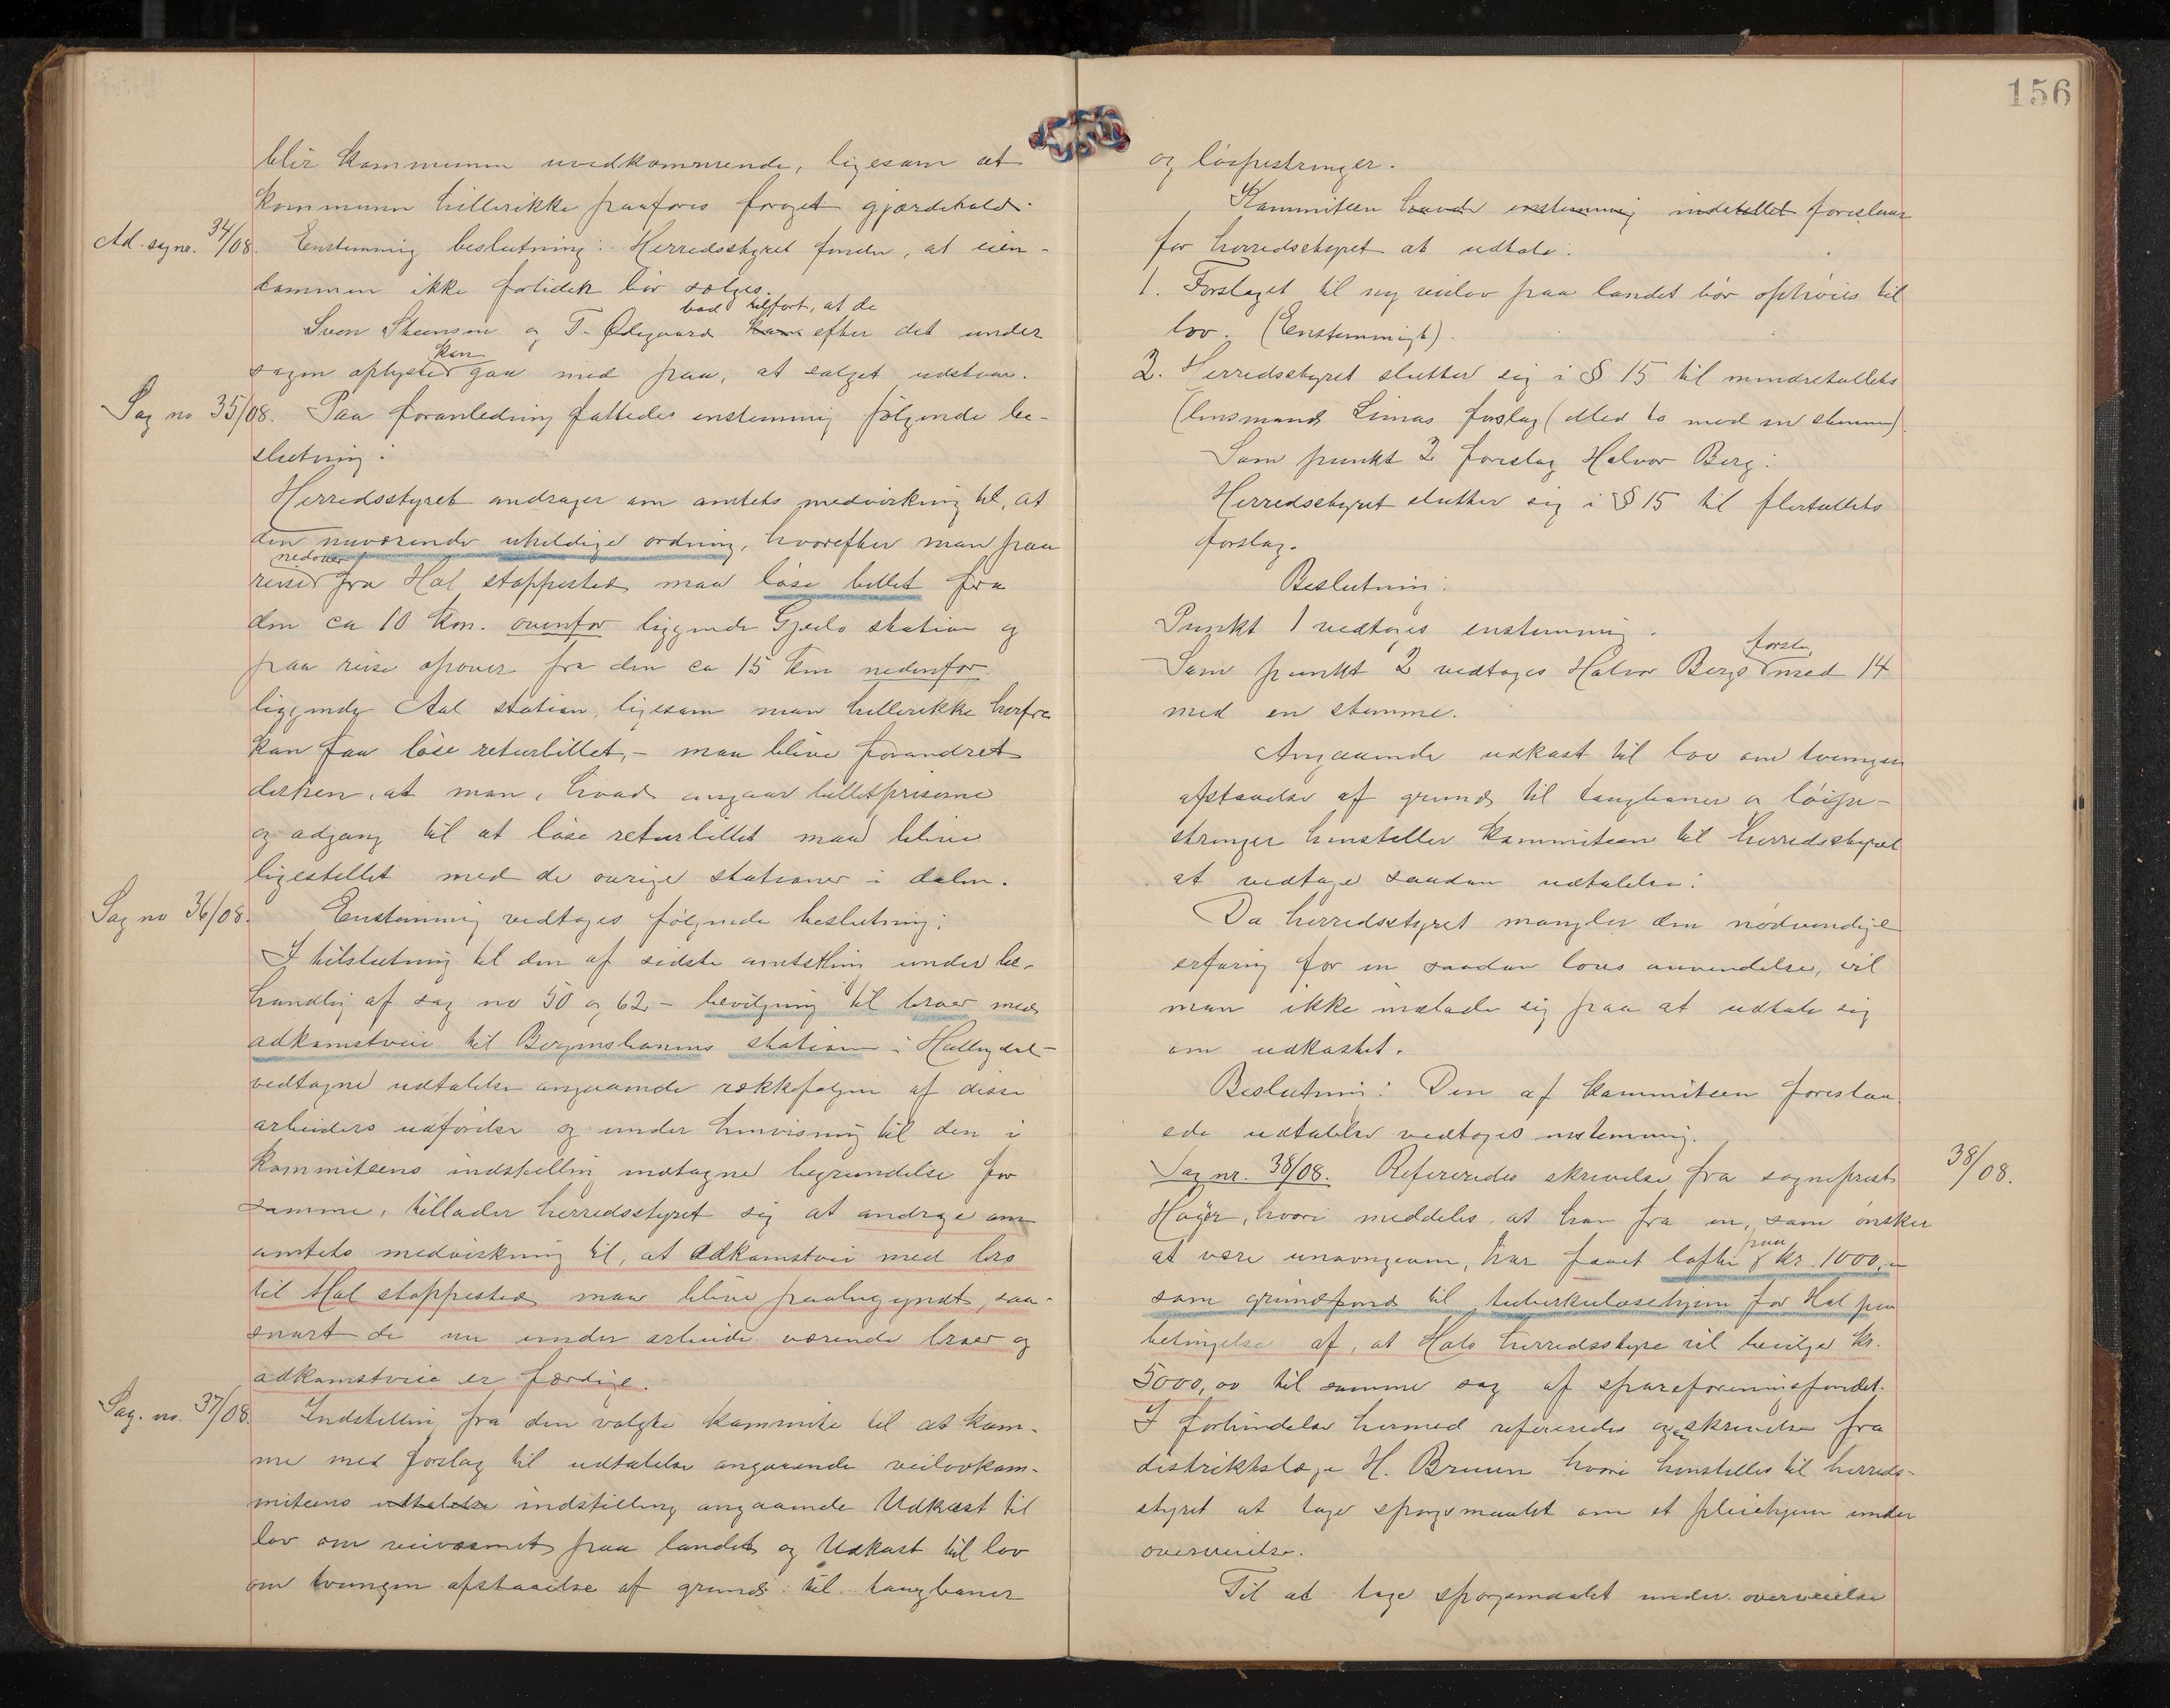 blir kommunen uvedkommende, ligesom at
kommunen hellerikke paaføres forøget gjærdehold.
Ad. sag nr. 34/08. Enstemmig beslutning: Herredsstyret finder, at eien-
dommen ikke fortiden bør sælges.
bad tilført, at de
Sven Steensen og T. Ødegaard efter det under
kan
sagen oplyste gaa med paa, at salget udstaar.
Sag no 35/08. Paa foranledning fattedes enstemmig følgende be-
slutning:
Herredsstyret andrager om amtets medvirkning til, at
den nuværende uheldige ordning, hvorefter man paa
nedover
reiser fra Hol stoppested maa løse billet fra
den ca 10 km. ovenfor liggende Gjeilo station og
paa reise opover fra den ca 15 km nedenfor
liggende Aal station, ligesom man hellerikke herfra
kan faa løse returbillet, - maa blive forandret
derhen, at man, hvad angaar billetpriserne
og adgang til at løse returbillet maa blive
ligestillet med de øvrige stationer i dalen.
Sag no 36/08. Enstemmig vedtoges følgende beslutning:
I tilslutning til den af sidste amtsthing under be-
handling af sag no 50 og 62 - bevilgning til broer med
adkomstveie til Bergensbanens stationer i Hallingdal -
vedtagne udtalelse angaaende rækkefølgen af disse
arbeiders udførelse og under henvisning til den i
kommiteens indstilling indtagne begrundelse for
samme, tillader herredsstyret sig at andrage om
amtets medvirkning til, at adkomstvei med bro
til Hol stoppested maa blive paabegyndt, saa-
snart de nu under arbeide værende broer og
adkomstveie er færdige.
Sag. no. 37/08 Indstilling fra den valgte kommite til at kom-
me med forslag til udtalelse angaaende veilovkom-
miteens udtalelse indstilling angaaende Udkast til
lov om veivæsenet paa landet og Udkast til lov
om tvungen afstaaelse af grund til taugbaner
156
og løipestrenger.
Kommiteen havde enstemmig indstillet foreslaar
for herredsstyret at udtale:
1. Forslaget til ny veilov paa landet bør ophøies til
lov. (Enstemmigt).
2. Herredsstyret slutter sig i § 15 til mindretallets
(lensmand Limas forslag (Med to mod en stemme)
Som punkt 2 foreslog Halvor Berg:
Herredsstyret slutter sig i § 15 til flertallets
forslag.
Beslutning:
Punkt 1 vedtoges enstemmig.
forslag
Som punkt 2 vedtoges Halvor Bergs med 14
mod en stemme.
Angaaende udkast til lov om tvungen
afstaaelse af grund til taugbaner og løipe-
strenger henstiller kommiteen til herredsstyret
at vedtage saadan udtalelse:
Da herredsstyret mangler den nødvendige
erfaring for en saadan lovs anvendelse, vil
man ikke indlade sig paa at udtale sig
om udkastet.
Beslutning: Den af kommiteen foreslaa-
ede udtalelse vedtoges enstemmig.
Sag nr. 38/08. Refereredes skrivelse fra sogneprest 38/08.
Høyer, hvori meddeles at han fra en, som ønsker
paa
at være unavngiven, har faaet løfte kr. 1000,00
som grundfond til tuberkulosehjem for Hol paa
betingelse af, at Hols herredsstyre vil bevilge kr.
5000,00 til samme sag af spareforeningsfondet.
I forbindelse hermed refereredes og skrivelse fra
distriktslæge H. Bruun hvori henstilles til herreds-
styret at tage spørgsmaalet om et pleiehjem under
overveielse.
Til at tage spørgsmaalet under overveielse